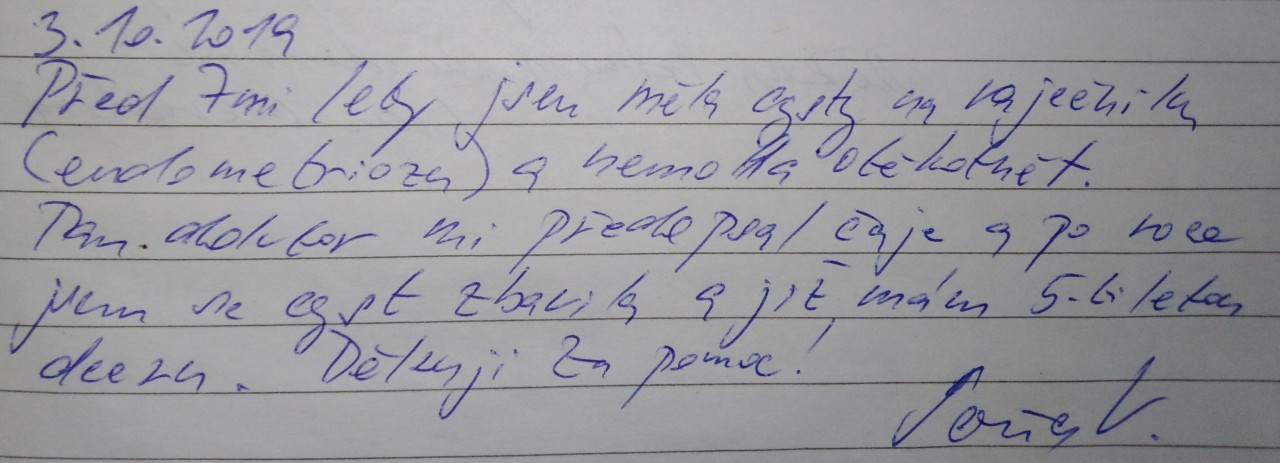 3.10.2019
Před 7mi lety jsem měla cysty na vaječníku
(endometrioza) a nemohla otěhotnět.
Pan. doktor mi předepsal čaje a po roce
jsem se cyst zbavila a již mám 5-ti letou
dceru. Děkuji za pomoc!
Soňa V.